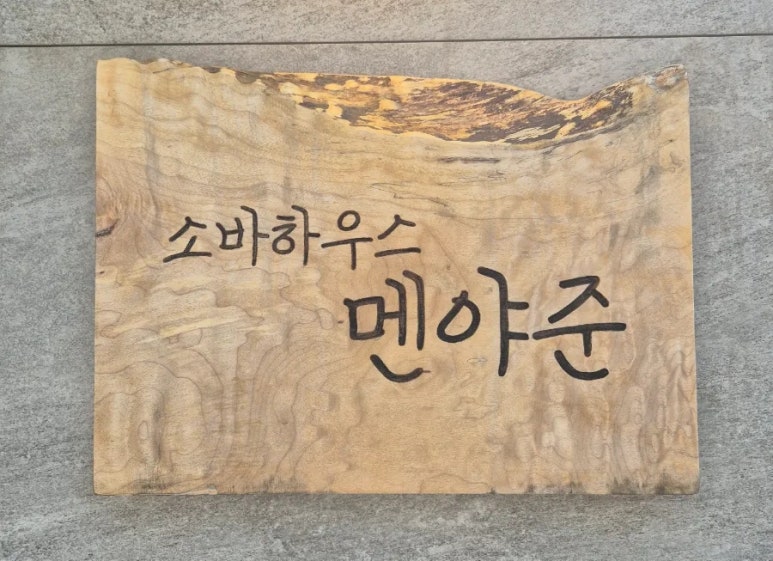 소바하우스
멘야준